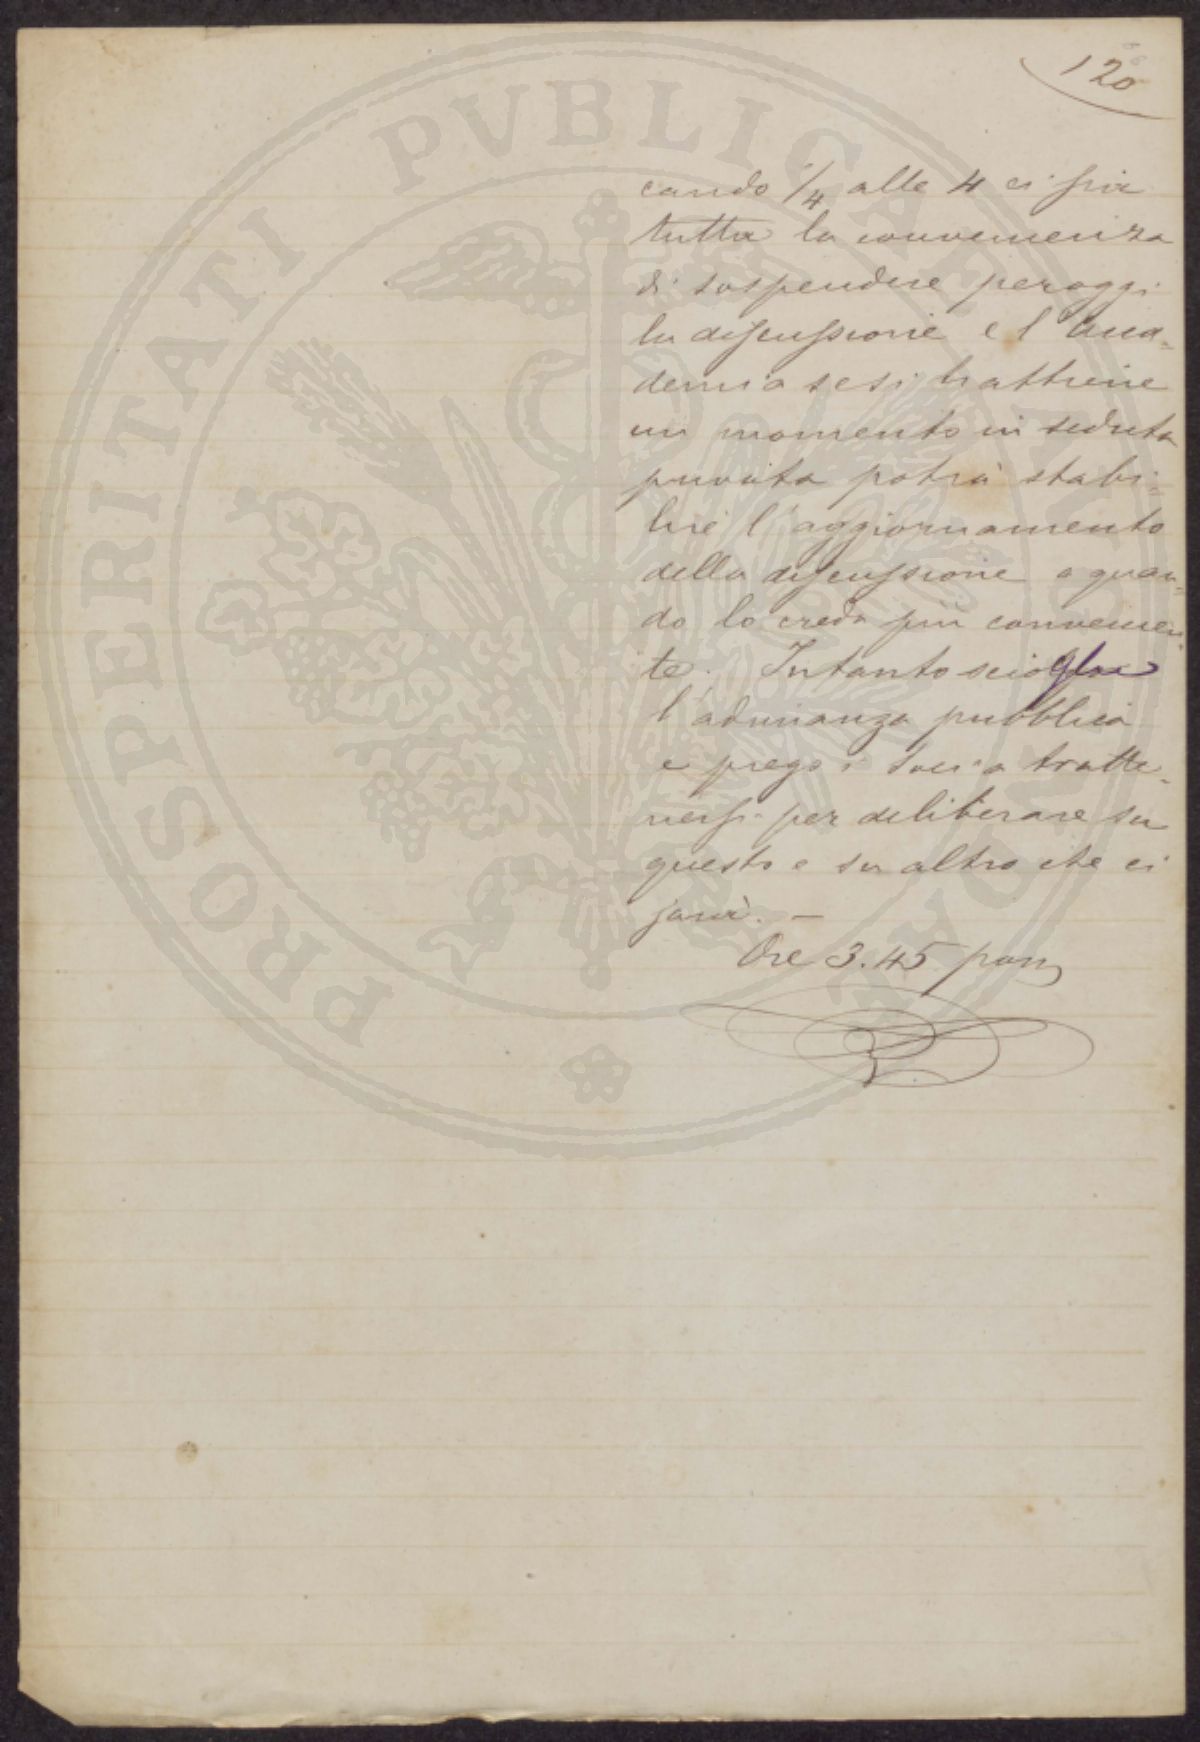 120
cando 1/4 alle 4 ci sia
tutta la convenienza
di sospendere per oggi
la discussione e l'Acca=
demia se si trattiene
un momento in seduta
privata potrà stabi=
lire l'aggiornamento
della discussione a quan=
do lo creda più convenien=
te. Intanto scioglie
l'adunanza pubblica
e prego i Soci a tratte=
nersi per deliberare su
questo e su altro che ci
sarà. —
Ore 3.45 pom
PROSPERITATI PVBLICAE AVGENDAE